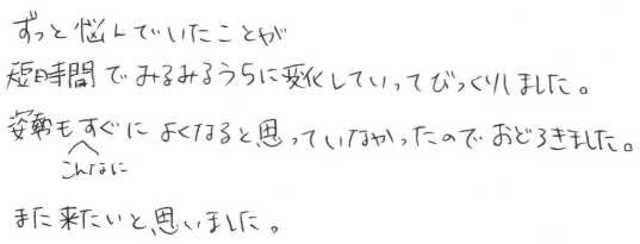 ずっと悩んでいたことが
短時間でみるみるうちに変化していってびっくりしました。
姿勢もすぐによくなると思っていなかったのでおどろきました。
こんなに
また来たいと思いました。